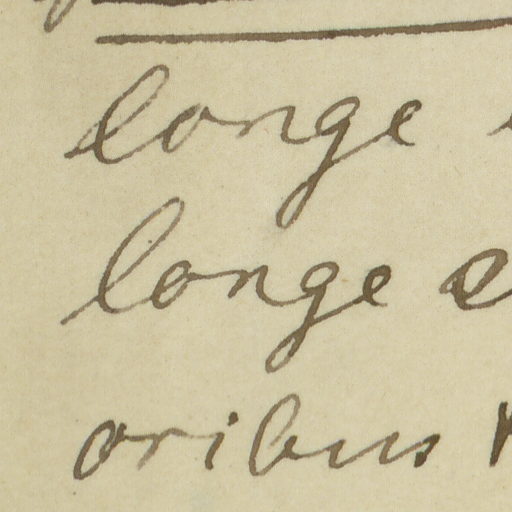 longe
longe
oribus